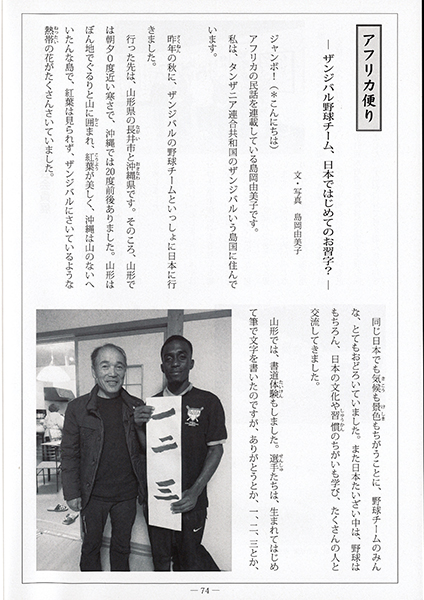 アフリカ便り
― ザンジバル野球チーム、日本ではじめてのお習字？ ―
文・写真　島岡由美子
ジャンボ！（＊こんにちは）
アフリカの民話を連載している島岡由美子です。
私は、タンザニア連合共和国のザンジバルいう島国に住んで
います。
昨年の秋に、ザンジバルの野球チームといっしょに日本に行
きました。
行った先は、山形県の長井市と沖縄県です。そのころ、山形で
は朝夕０度近い寒さで、沖縄では20度前後ありました。山形は
ぼん地でぐるりと山に囲まれ、紅葉が美しく、沖縄は山のないへ
いたんな島で、紅葉は見られず、ザンジバルにさいているような
熱帯の花がたくさんさいていました。
同じ日本でも気候も景色もちがうことに、野球チームのみん
な、とてもおどろいていました。また日本たいざい中は、野球は
もちろん、日本の文化や習慣のちがいも学び、たくさんの人と
交流してきました。
山形では、書道体験もしました。選手たちは、生まれてはじめ
て筆で文字を書いたのですが、ありがとうとか、一、二、三とか、
一二三
― 74 ―